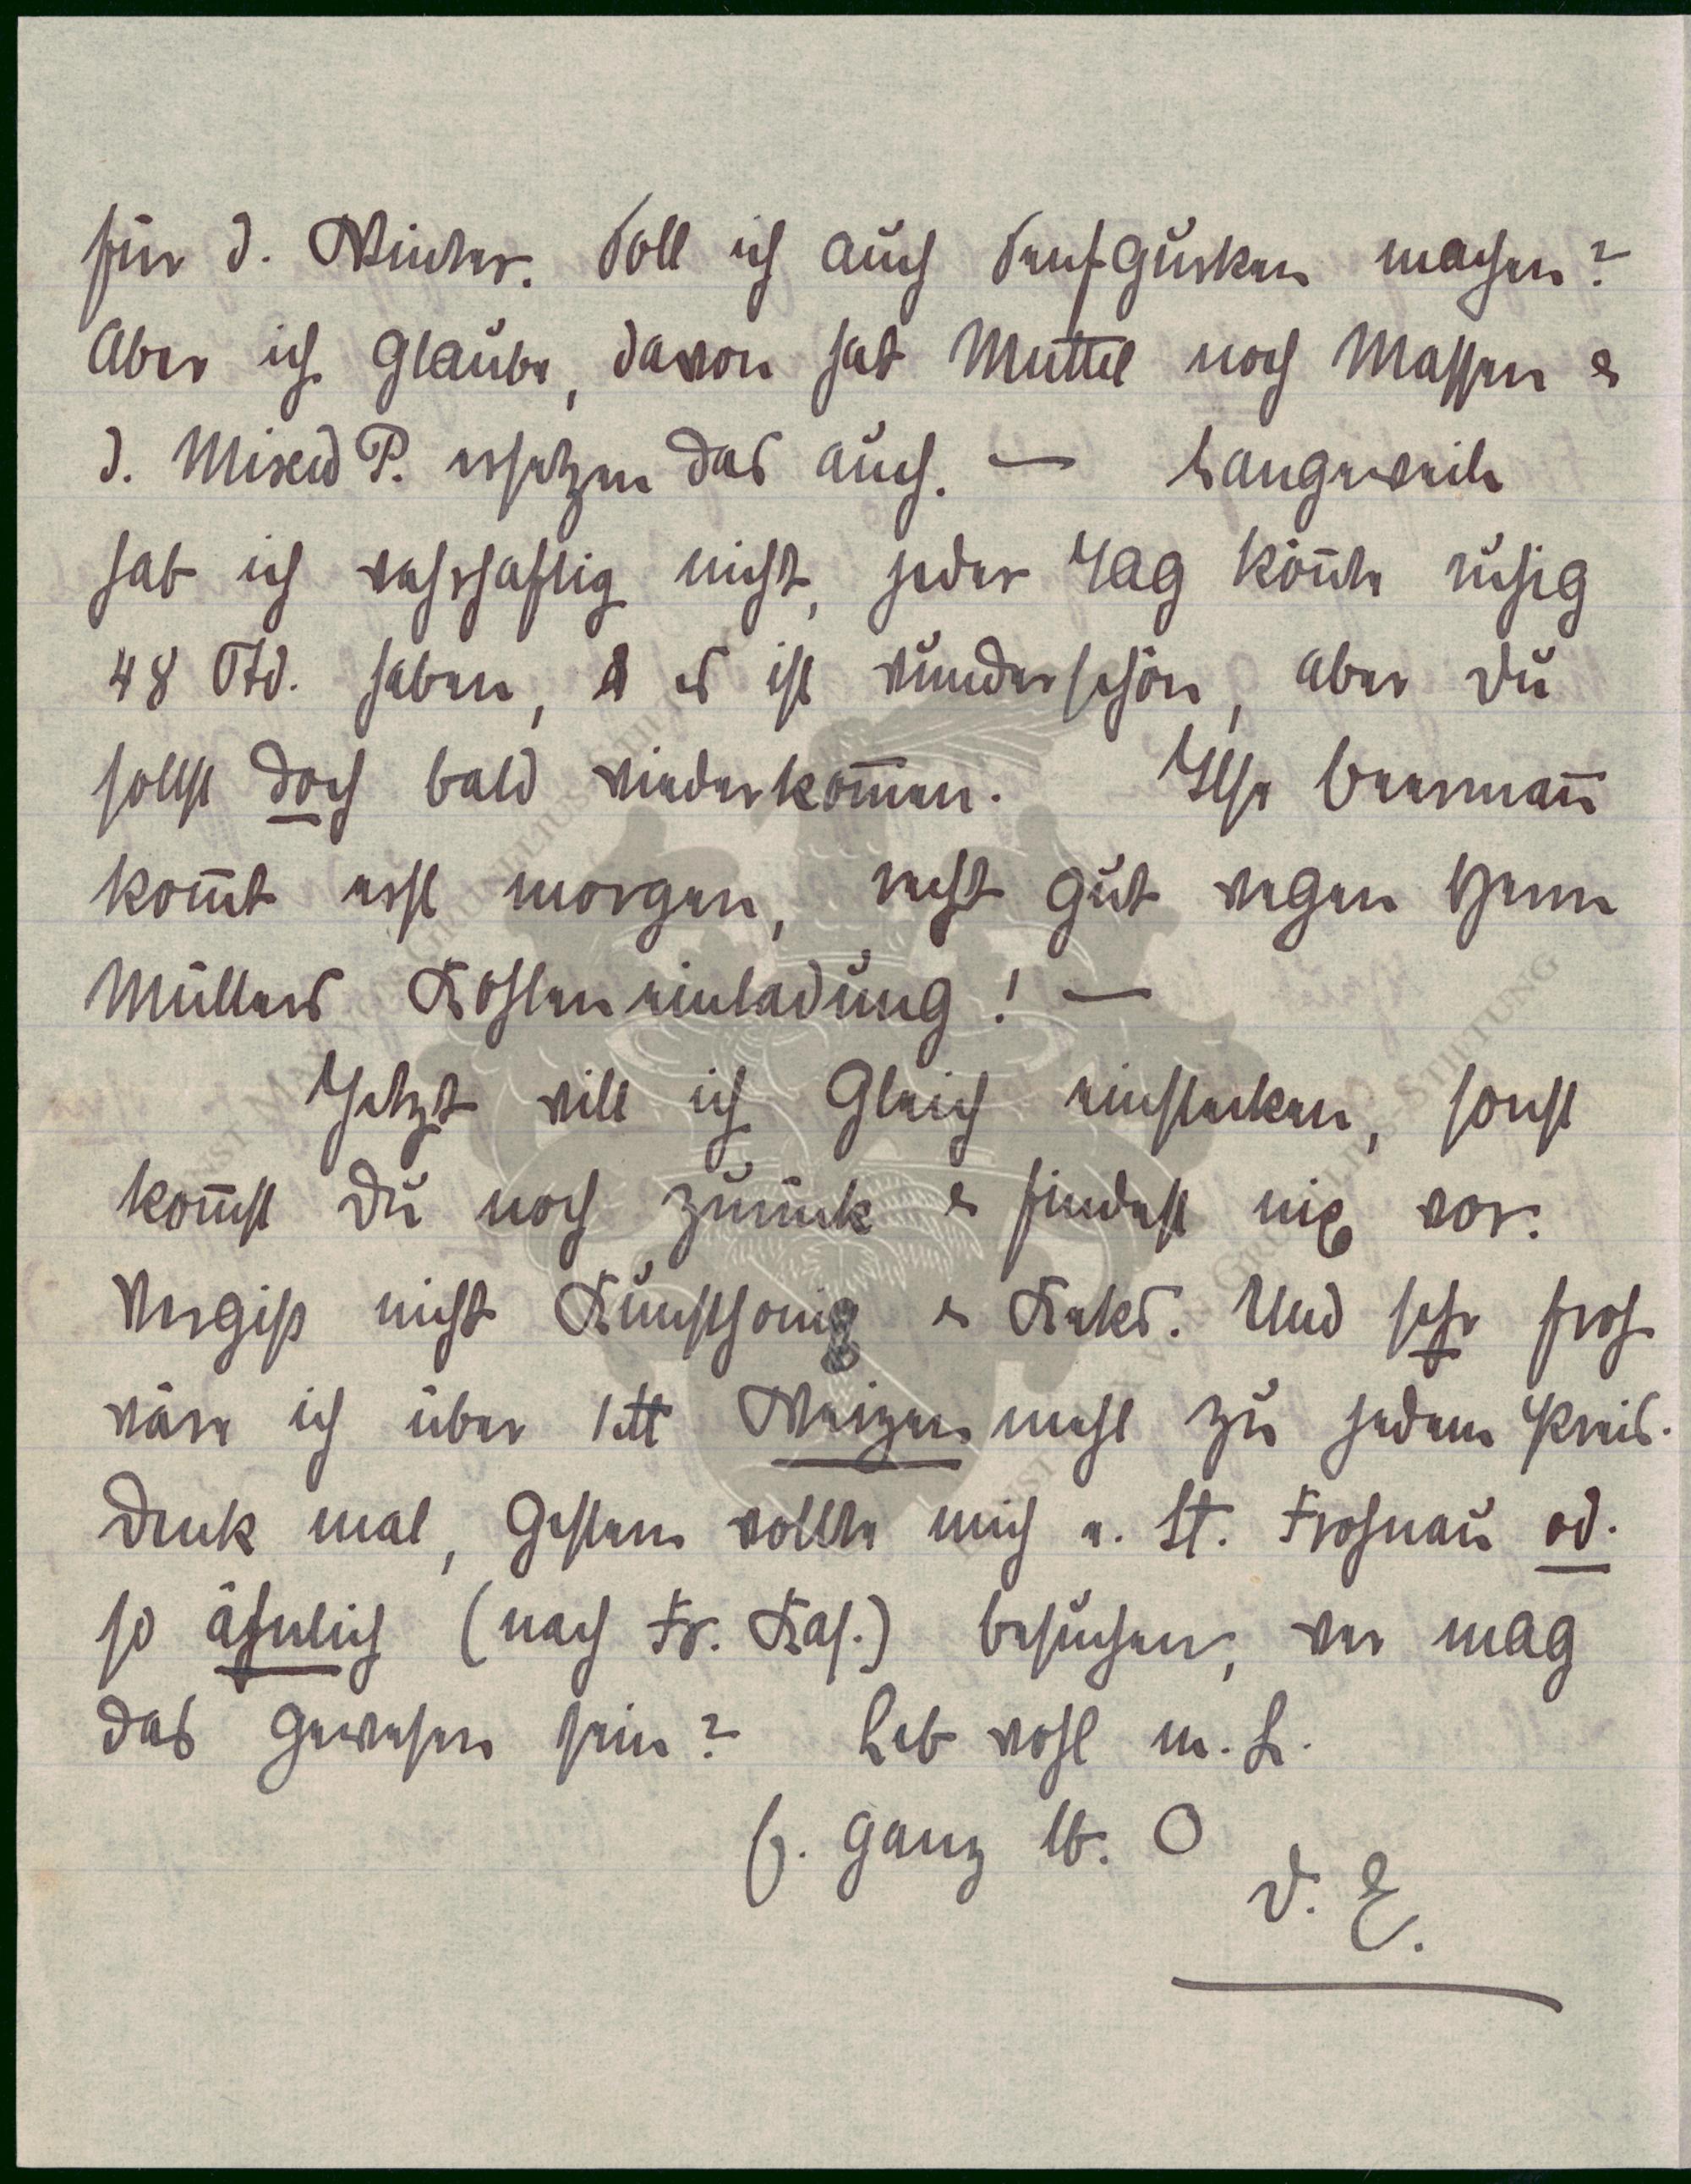 für d. Winter. Soll ich auch Senfgurken machen?
Aber ich glaube, davon hat Muttel noch Massen &
d. Mixed P. ersetzen das auch. — Langeweile
hab ich wahrhaftig nicht, jeder Tag könnte ruhig
48 Std. haben, & es ist wunderschön, aber Du
sollst doch bald wiederkommen. Ilse Beermann
kommt erst morgen, recht gut wegen Herrn
Müllers Kohleneinladung! —
Jetzt will ich gleich einstecken, sonst
kommst Du noch zurück & findest nix vor.
Vergiß nicht Kunsthonig & Keks. Und sehr froh
wäre ich über 1 ℔ Weizenmehl zu jedem Preis.
Denk mal, gestern wollte mich e. Lt. Frohnau od.
so ähnlich (nach Fr. Kas.) besuchen, wer mag
das gewesen sein? Leb wohl m. L.
G. ganz lb. O
D. E.
ERNST MAX VON GRÖNLIEUS STIFTUNG